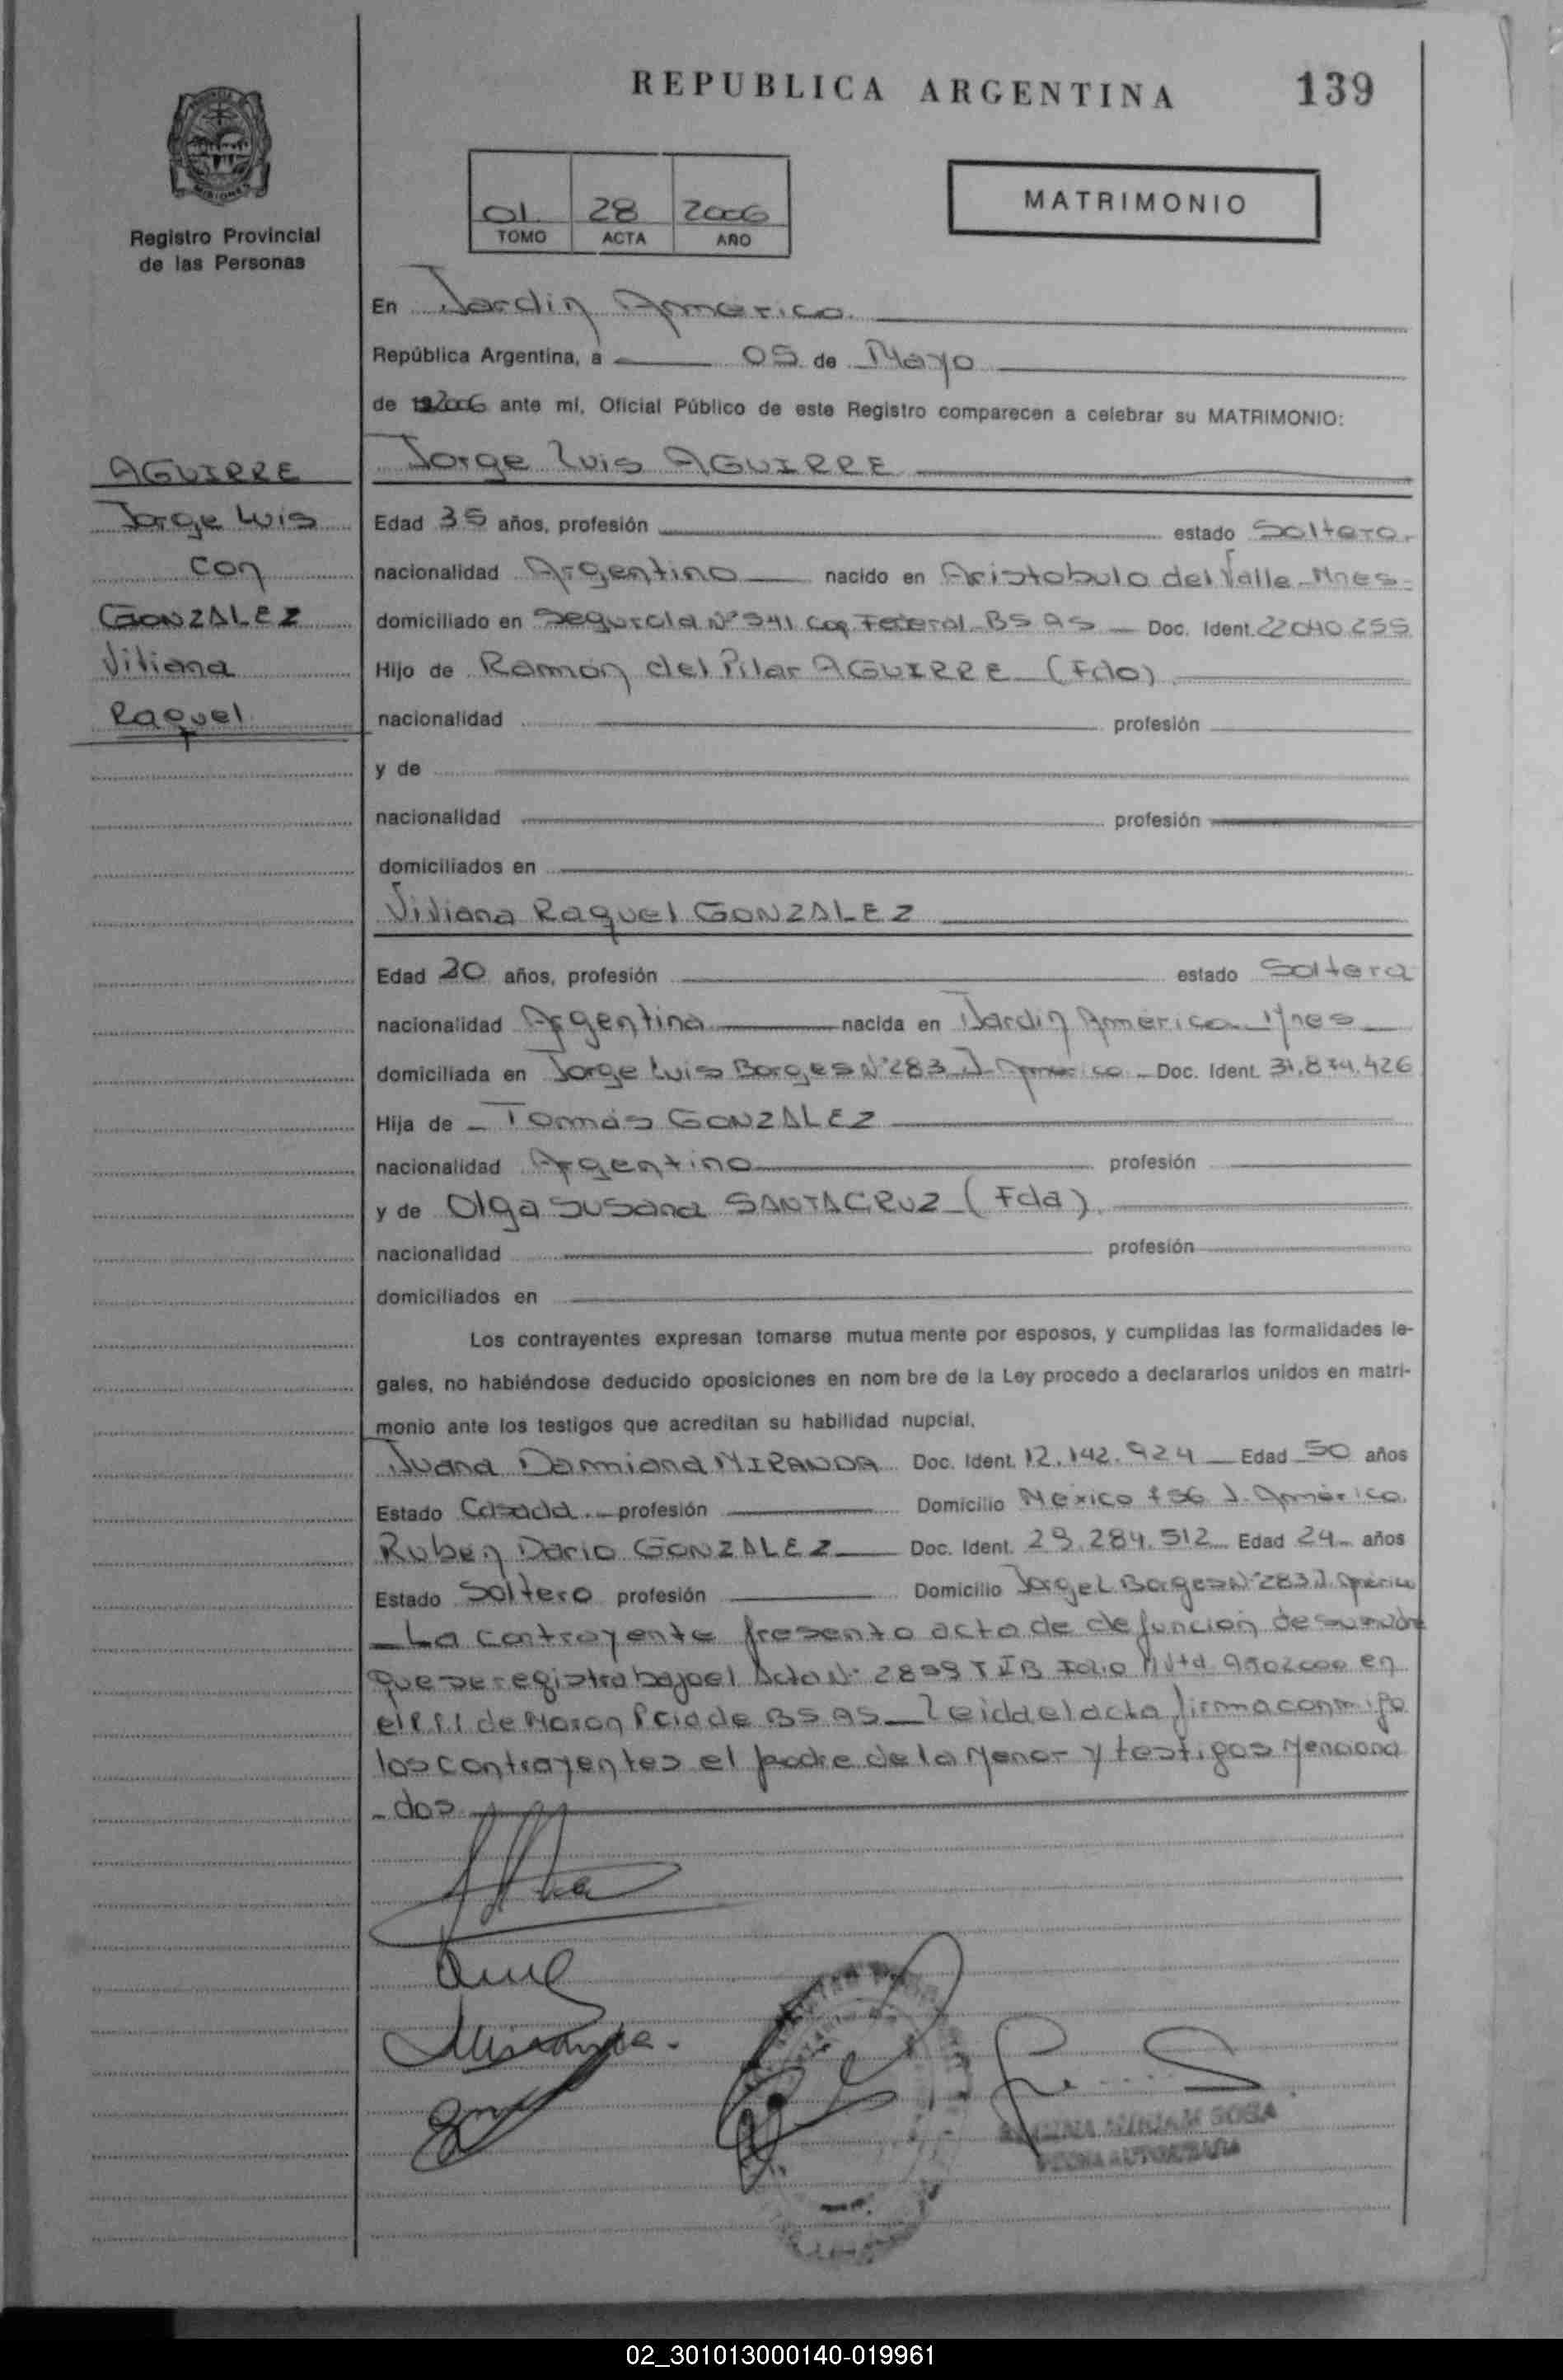 REPUBLICA ARGENTINA 139
Registro Provincial
de las Personas
01 28 2006
TOMO ACTA AÑO
MATRIMONIO
En Jardin America
República Argentina, a 05 de Mayo
de 2006 ante mí, Oficial Público de este Registro comparecen a celebrar su MATRIMONIO:
AGUIRRE
Jorge Luis
con
GONZALEZ
Viviana
Raquel
Jorge Luis AGUIRRE
Edad 35 años, profesión estado Soltero
nacionalidad Argentino nacido en Aristobulo del Valle Mnes
domiciliado en Segurola Nº 941 Cap Federal BS AS Doc. Ident. 22040255
Hijo de Ramón del Pilar AGUIRRE (Fdo)
nacionalidad profesión
y de
nacionalidad profesión
domiciliados en
Viviana Raquel GONZALEZ
Edad 20 años, profesión estado Soltera
nacionalidad Argentina nacida en Jardin America Mnes
domiciliada en Jorge Luis Borges Nº 283 J. America Doc. Ident. 31.874.426
Hija de Tomás GONZALEZ
nacionalidad Argentino profesión
y de Olga Susana SANTACRUZ (Fda)
nacionalidad profesión
domiciliados en
Los contrayentes expresan tomarse mutua mente por esposos, y cumplidas las formalidades le-
gales, no habiéndose deducido oposiciones en nom bre de la Ley procedo a declararlos unidos en matri-
monio ante los testigos que acreditan su habilidad nupcial.
Juana Damiana MIRANDA Doc. Ident. 12.142.924 Edad 50 años
Estado Casada profesión Domicilio Mexico J. América
Ruben Dario GONZALEZ Doc. Ident. 29.284.512 Edad 24 años
Estado Soltero profesión Domicilio Jorge L Borges Nº 283 J. America
La contrayente presento acta de defuncion de su madre
que se registra bajo el Acta Nº 2899 T I B Folio en
el de Moron Pcia de BS AS Leida el acta firma conmigo
los contrayentes el padre de la Menor y testigos Menciona
-dos
MIRIAM SOSA
02_301013000140-019961